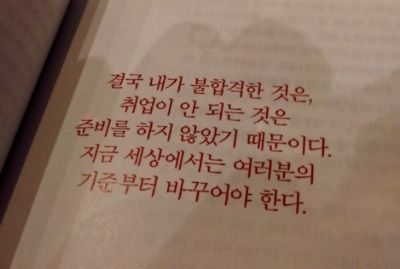 결국 내가 불합격한 것은,
취업이 안 되는 것은
준비를 하지 않았기 때문이다.
지금 세상에서는 여러분의
기준부터 바꾸어야 한다.